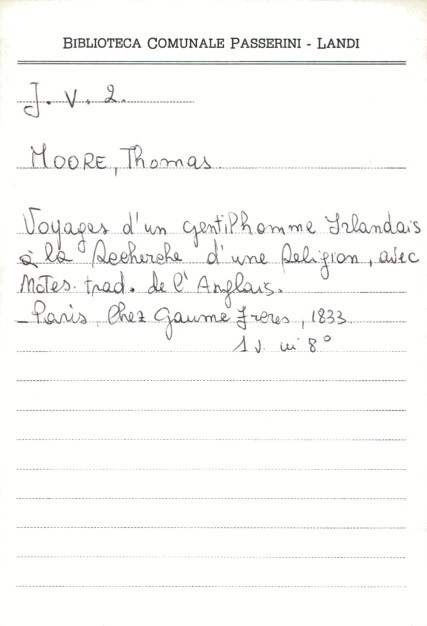 BIBLIOTECA COMUNALE PASSERINI - LANDI
J. V. 2.
MOORE, Thomas
Voyages d'un gentilhomme Irlandais
à la Recherche d'une Religion, avec
Notes. trad. de l'Anglais.
- Paris, Chez Gaume Freres, 1833
1 v. in 8°